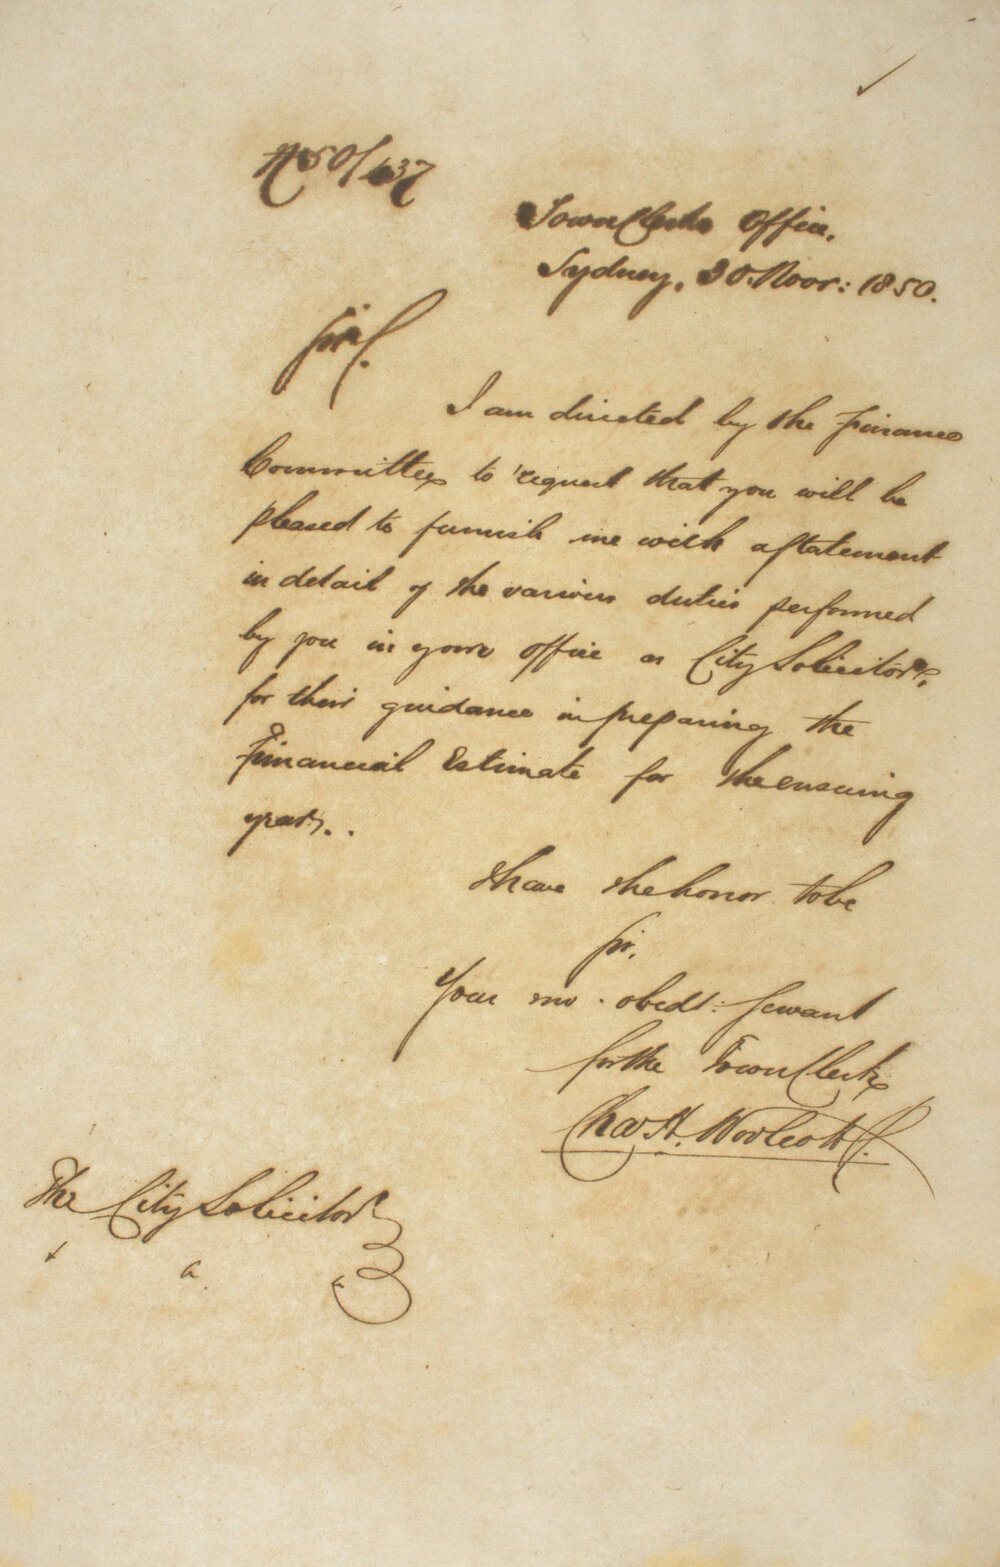 50/437
Town Clerks Office,
Sydney, 30. Novr: 1850.
Sir,
I am directed by the Finance
Committee to request that you will be
pleased to furnish me with a statement
in detail of the various duties performed
by you in your office as City Solicitor,
for their guidance in preparing the
Financial Estimate for the ensuing
year..
I have the honor to be
Sir,
Your mo. obedt: Servant
for the Town Clerk
Chas H. Woolcott
The City Solicitor